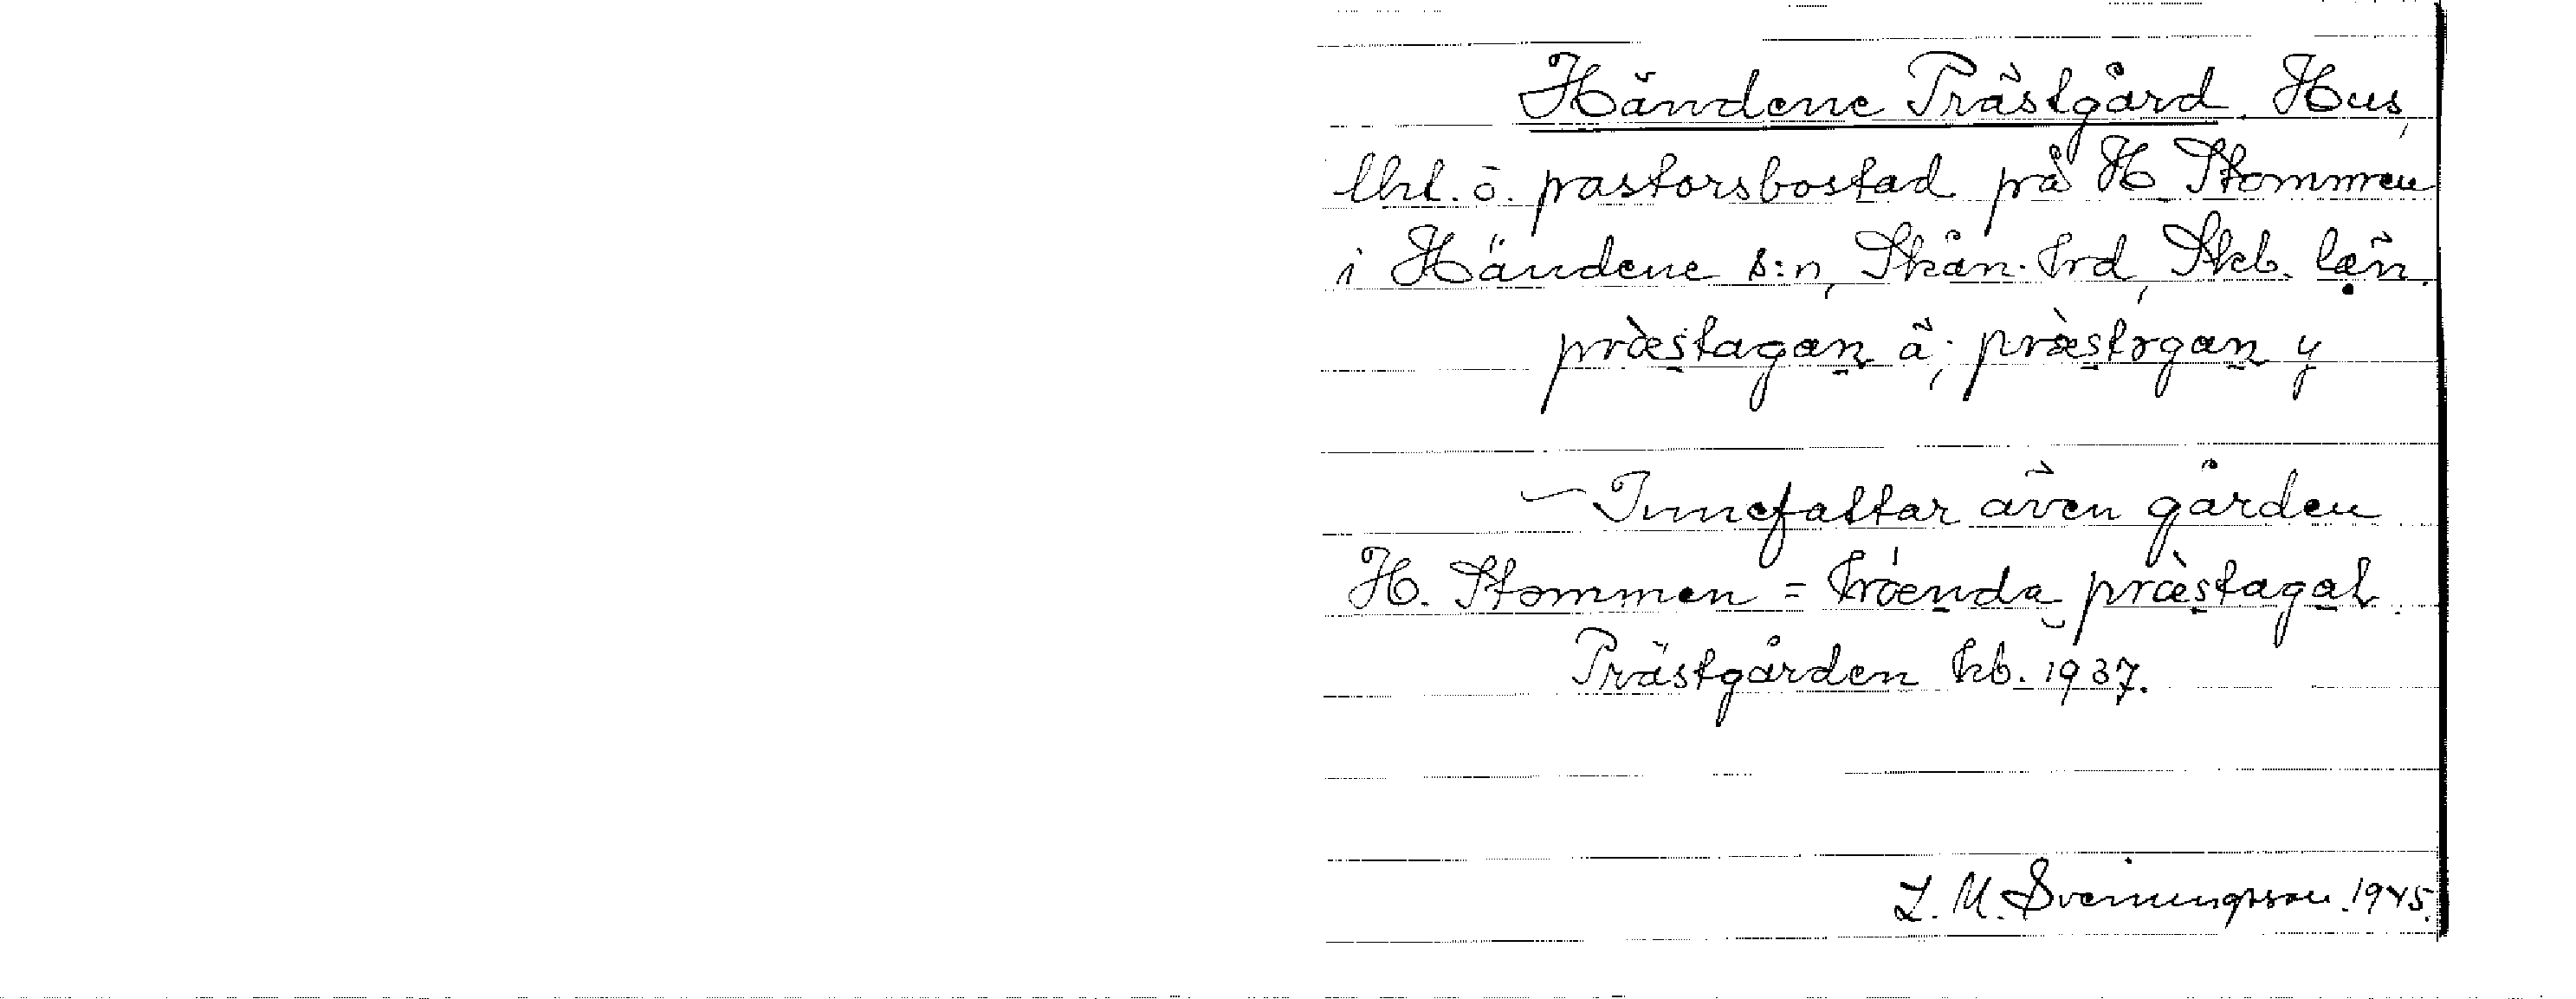 Händene Prästgård. Hus,
lht. o. pastorsbostad på H. Stommen
i Händene s:n, Skån. hrd, Skb. län.
præstagaɳ ä; præstɔgaɳ y
Innefattar även gården
H. Stommen = præstagaɫ.
Prästgården kb. 1937.
L. M. Svenungsson. 1945.